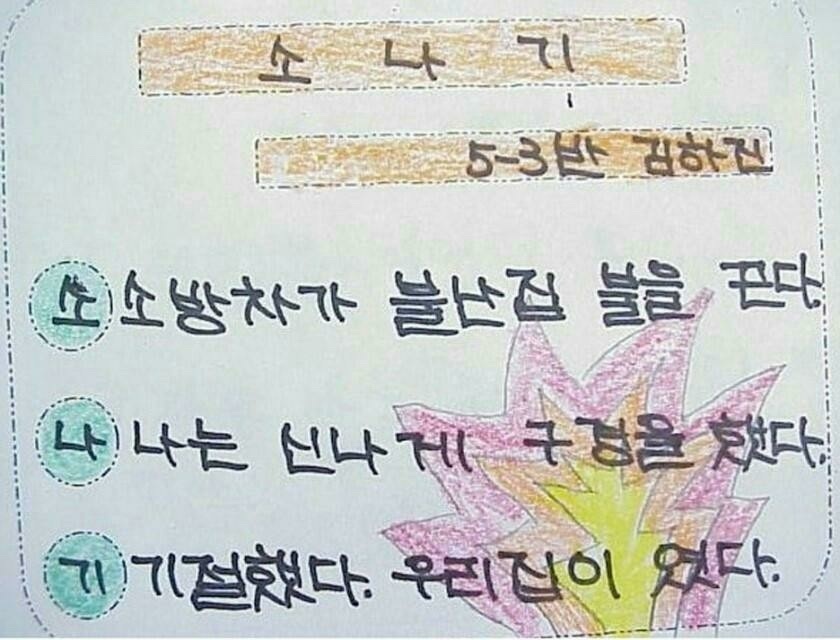 소 나 기
5-3반 김하진
소 소방차가 불난집 불을 끈다.
나 나는 신나게 구경을 했다.
기 기절했다. 우리집이 였다.